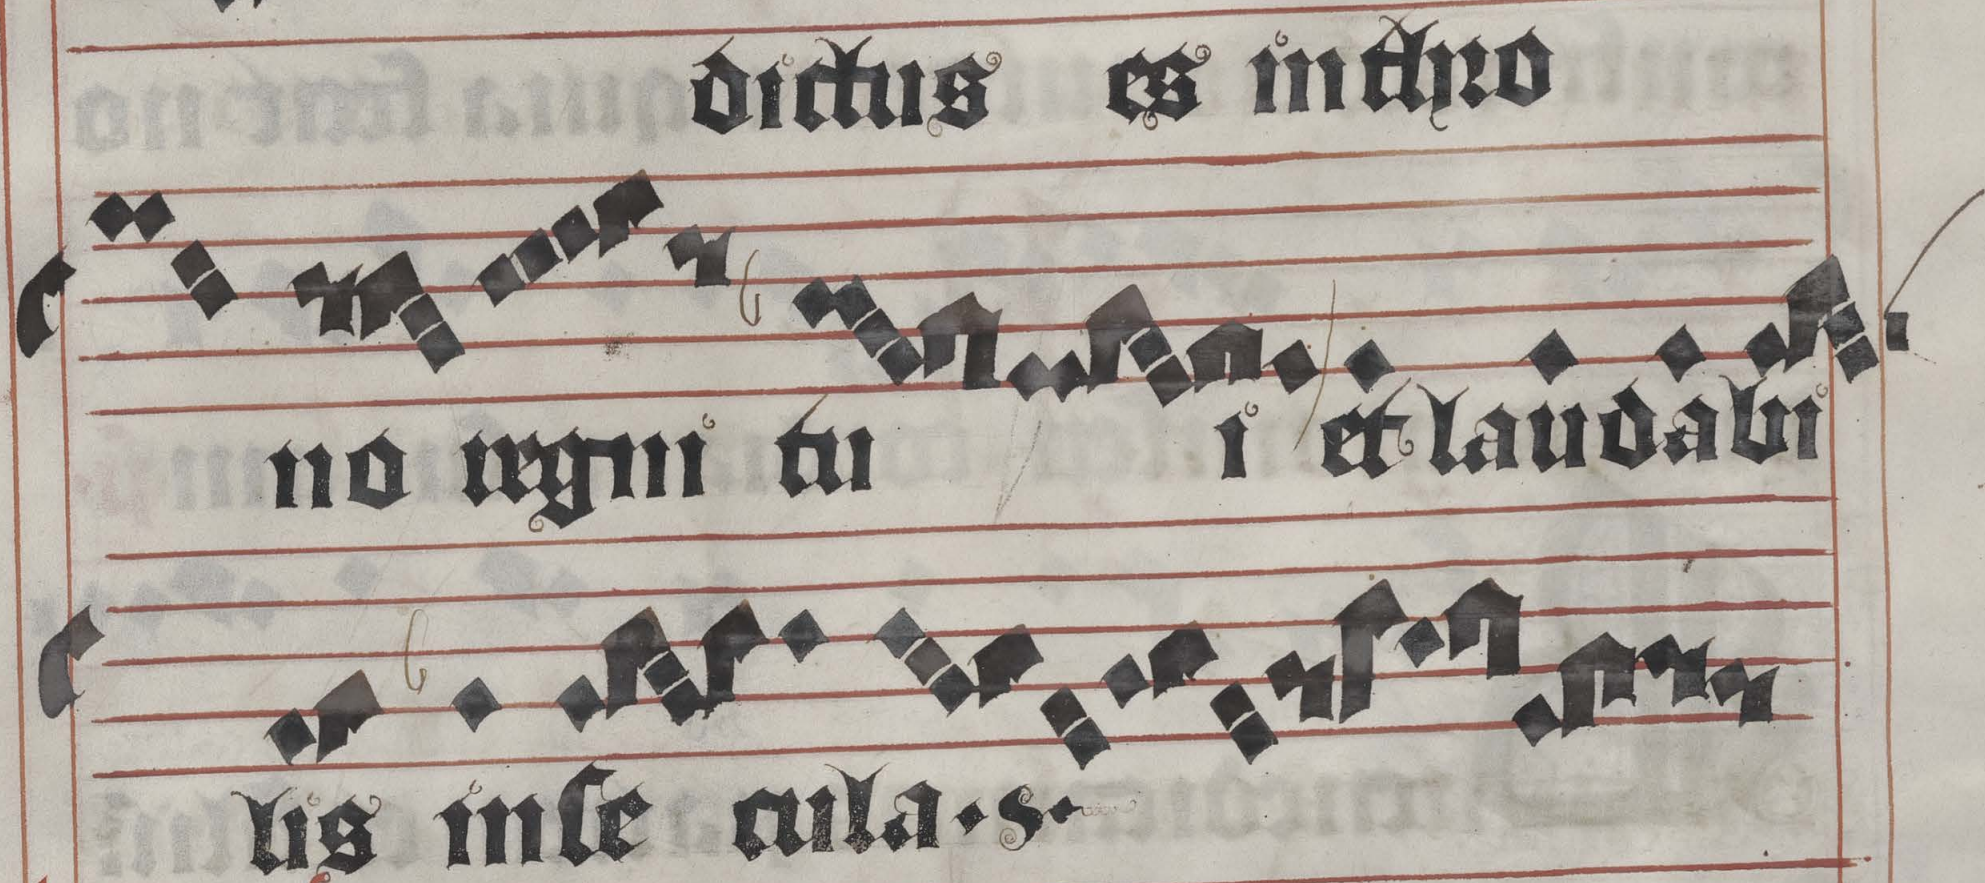 dictus es in thro
no regni tu i et laudabi
lis in se cula · s ·